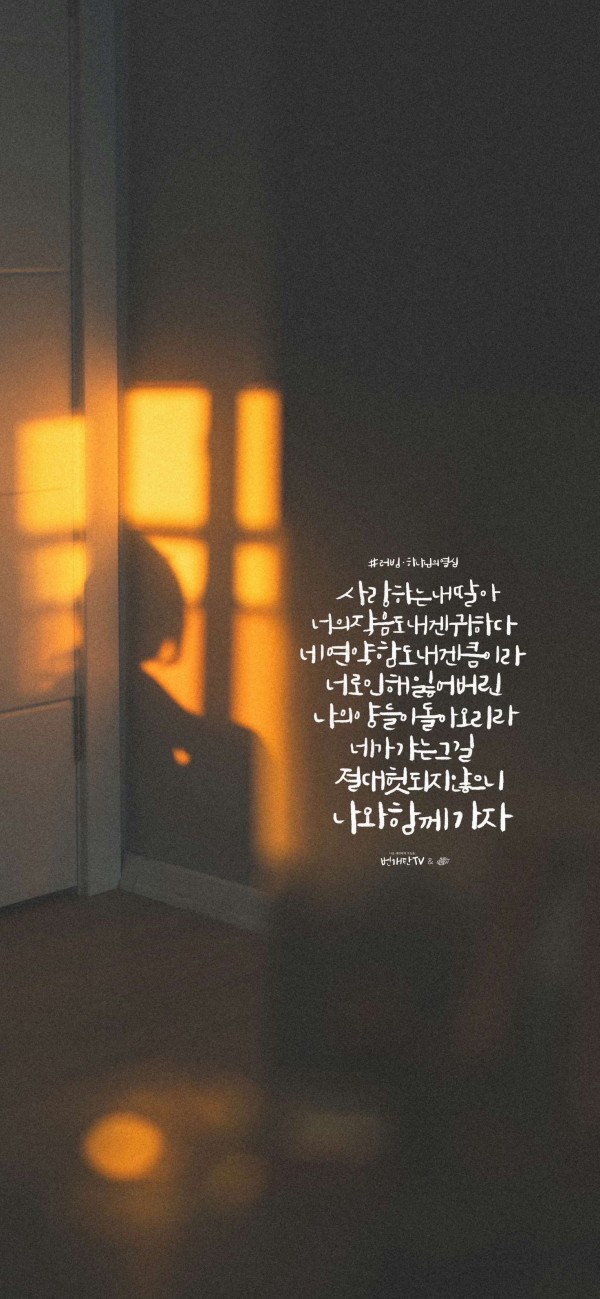 #러빔·하나님의열심
사랑하는내딸아
너의작음도내겐귀하다
네연약함도내겐큼이라
너로인해잃어버린
나의양들이돌아오리라
네가가는그길
절대헛되지않으니
나와함께가자
번개탄TV &